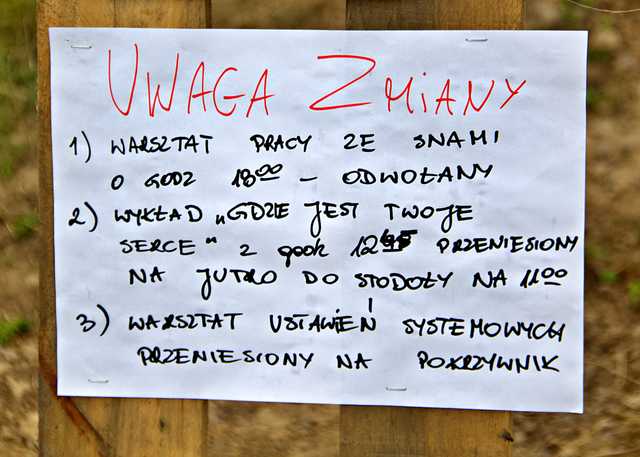 UWAGA ZMiANY
1) WARSZTAT PRACY ZE SNAMI
O GODZ 18⁰⁰ – ODWOŁANY
2) WYKŁAD „GDZIE JEST TWOJE
SERCE" z godz PRZENIESIONY
NA JUTRO DO STODOŁY NA 11⁰⁰
3) WARSZTAT USTAWIEŃ SYSTEMOWYCH
PRZENIESIONY NA POKRZYWNIK